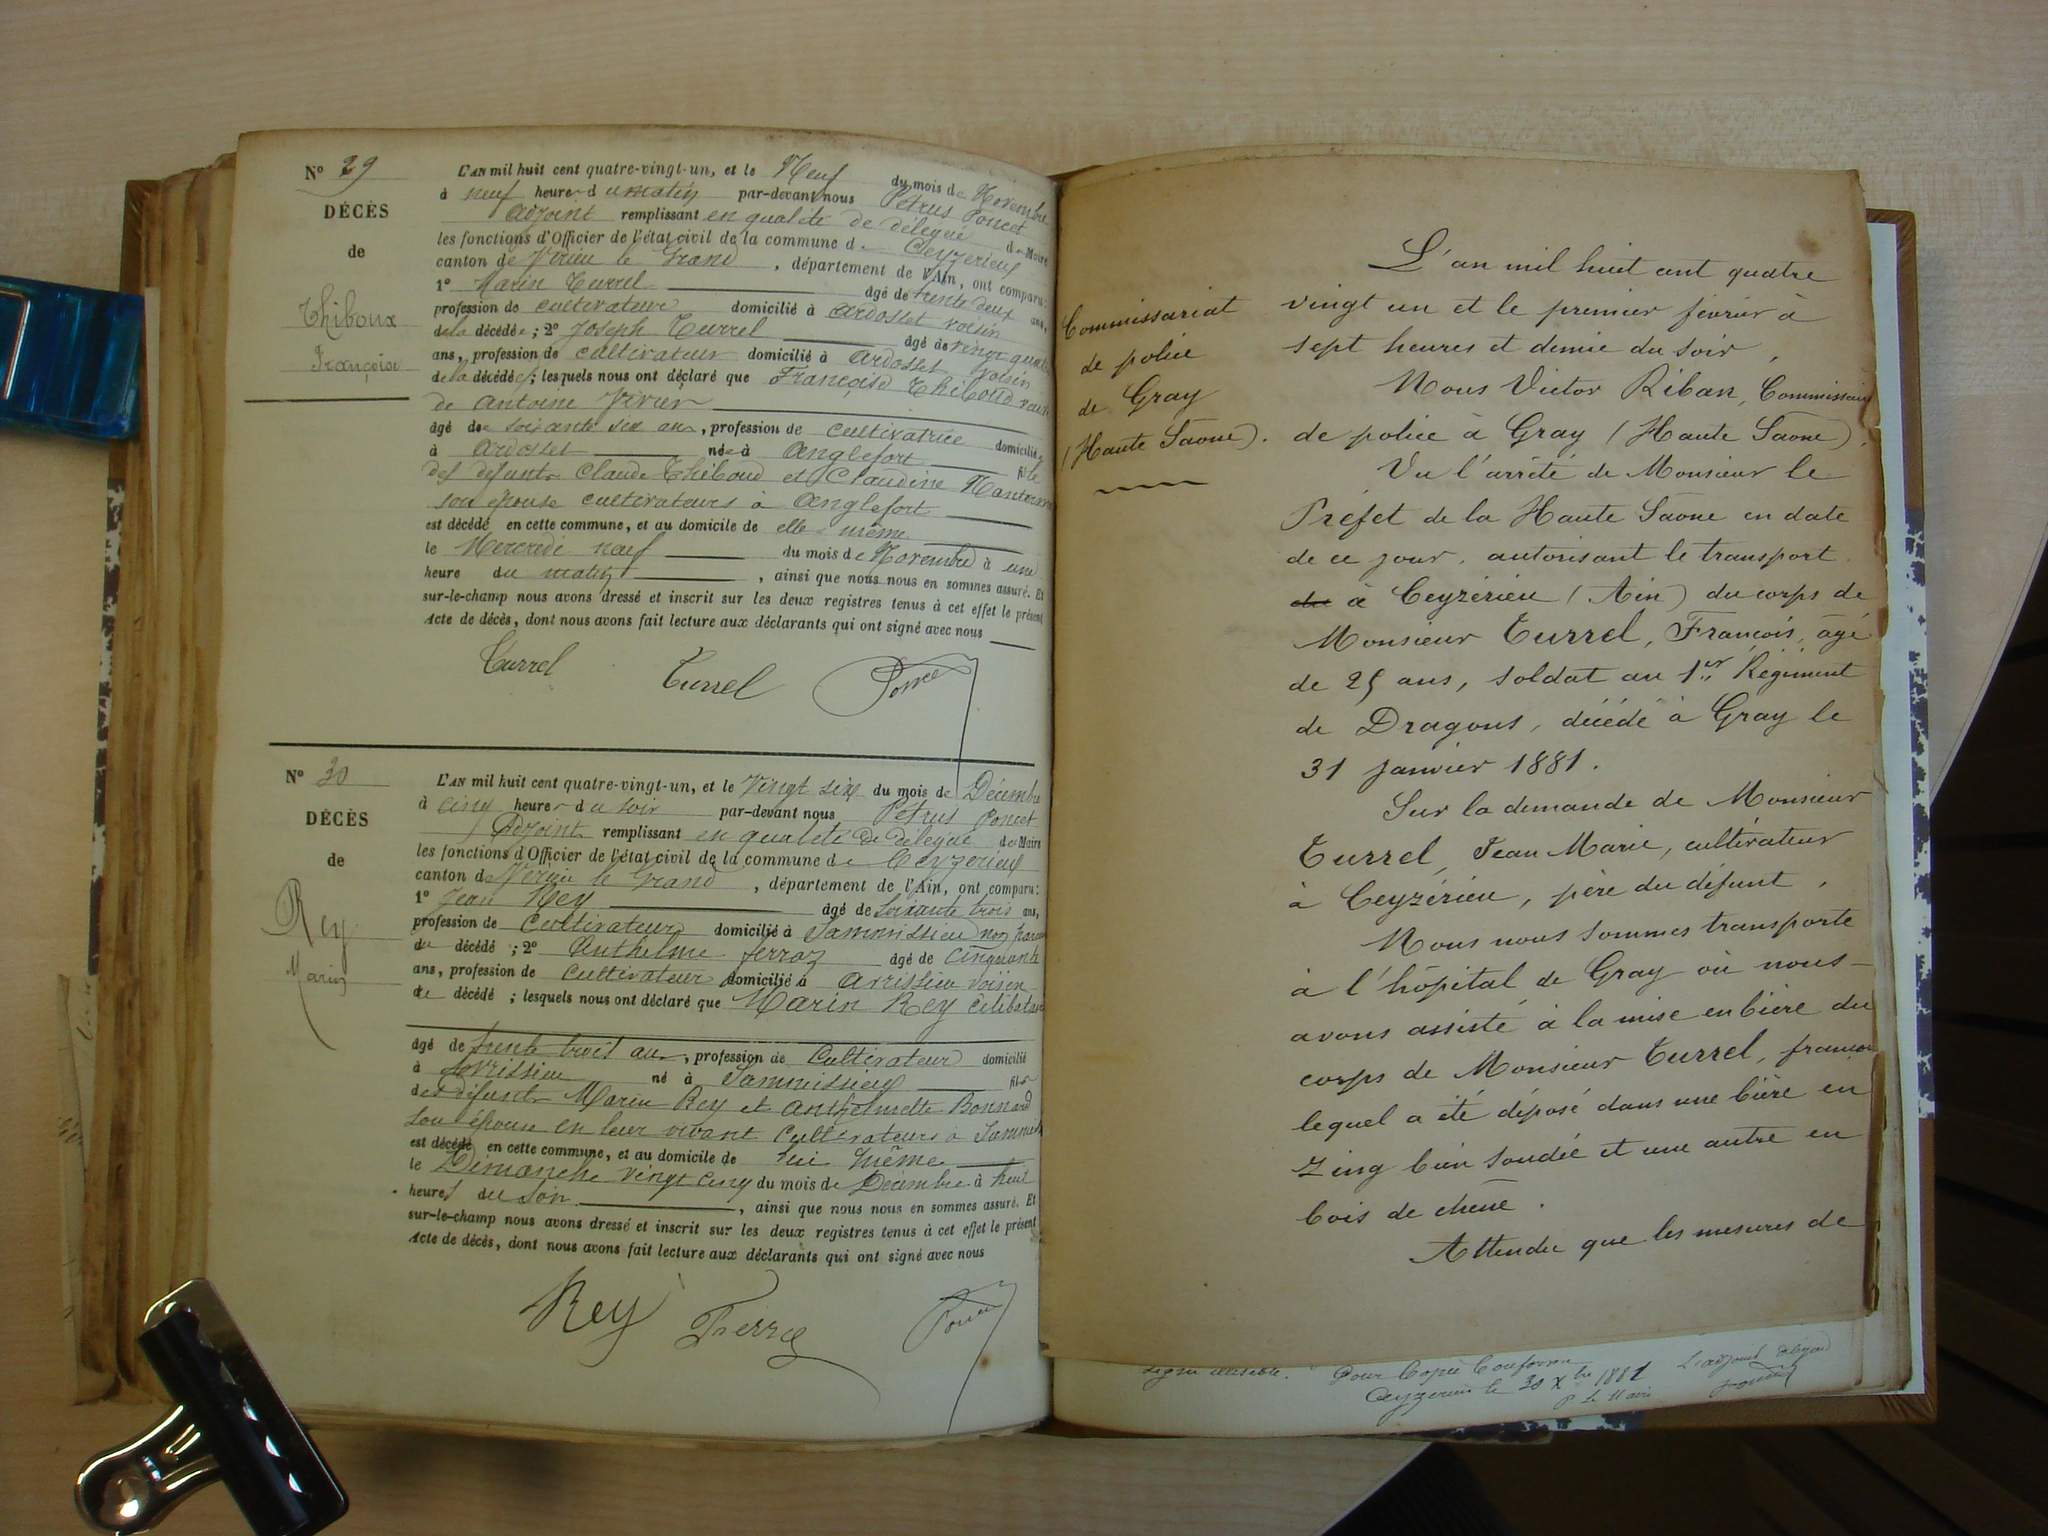 Nº 29
DÉCÈS
de
Thiboux
Françoise
L'AN mil huit cent quatre-vingt-un, et le Neuf du mois de Novembre
à neuf heures du matin par-devant nous Pétrus Poncet
Adjoint remplissant en qualité de délégué de Maire
les fonctions d'Officier de l'état civil de la commune de Ceyzerieu
canton de Virieu le Grand, département de l'Ain, ont comparu:
1º Marin Turrel âgé de trente deux ans,
profession de cultivateur domicilié à Ardosset voisin
de la décédée; 2º Joseph Turrel âgé de vingt quatre
ans, profession de cultivateur domicilié à Ardosset voisin
de la décédée; lesquels nous ont déclaré que Françoise Thiboud
de Antoine
âgé de soixante six ans, profession de cultivatrice domiciliée
à Ardosset née à Anglefort fille
des défunts Claude Thiboud et Claudine
son épouse cultivateurs à Anglefort
est décédé en cette commune, et au domicile de elle-même
le Mercredi neuf du mois de Novembre à une
heure du matin, ainsi que nous nous en sommes assuré. Et
sur-le-champ nous avons dressé et inscrit sur les deux registres tenus à cet effet le présent
Acte de décès, dont nous avons fait lecture aux déclarants qui ont signé avec nous
Turrel Turrel Poncet
Nº 30
DÉCÈS
de
Rey
Marin
L'AN mil huit cent quatre-vingt-un, et le Vingt six du mois de Décembre
à cinq heures du soir par-devant nous Pétrus Poncet
Adjoint remplissant en qualité de délégué de Maire
les fonctions d'Officier de l'état civil de la commune de Ceyzerieu
canton de Virieu le Grand, département de l'Ain, ont comparu:
1º Jean Rey âgé de soixante trois ans,
profession de Cultivateur domicilié à Sammissieu non parent
du décédé; 2º Anthelme Ferraz âgé de cinquante
ans, profession de Cultivateur domicilié à Avrissieu voisin
du décédé; lesquels nous ont déclaré que Marin Rey célibataire
âgé de trente trois ans, profession de Cultivateur domicilié
à Avrissieu né à Sammissieu fils
des défunts Marin Rey et Anthelmette Bonnard
son épouse en leur vivant Cultivateurs à
est décédé en cette commune, et au domicile de lui même
le Dimanche vingt cinq du mois de Décembre à huit
heures du soir, ainsi que nous nous en sommes assuré. Et
sur-le-champ nous avons dressé et inscrit sur les deux registres tenus à cet effet le présent
Acte de décès, dont nous avons fait lecture aux déclarants qui ont signé avec nous
Rey Poncet
Commissariat
de police
de Gray
(Haute Saône).
L'an mil huit cent quatre
vingt un et le premier février à
sept heures et demie du soir,
Nous Victor Riban, Commissaire
de police à Gray (Haute Saône).
Vu l'arrêté de Monsieur le
Préfet de la Haute Saône en date
de ce jour, autorisant le transport
à Ceyzérieu (Ain) du corps de
Monsieur Turrel, François, âgé
de 25 ans, soldat au 1er Régiment
de Dragons, décédé à Gray le
31 janvier 1881.
Sur la demande de Monsieur
Turrel, Jean Marie, cultivateur
à Ceyzérieu, père du défunt,
Nous nous sommes transporté
à l'hôpital de Gray où nous
avons assisté à la mise en bière du
corps de Monsieur Turrel, françois
lequel a été déposé dans une bière en
zing bien soudée et une autre en
bois de chêne.
Attendu que les mesures de
Signé illisible. Pour Copie Conforme
Ceyzerieu le 30 Xbre 1881
P. Le Maire
L'adjoint délégué
Poncet